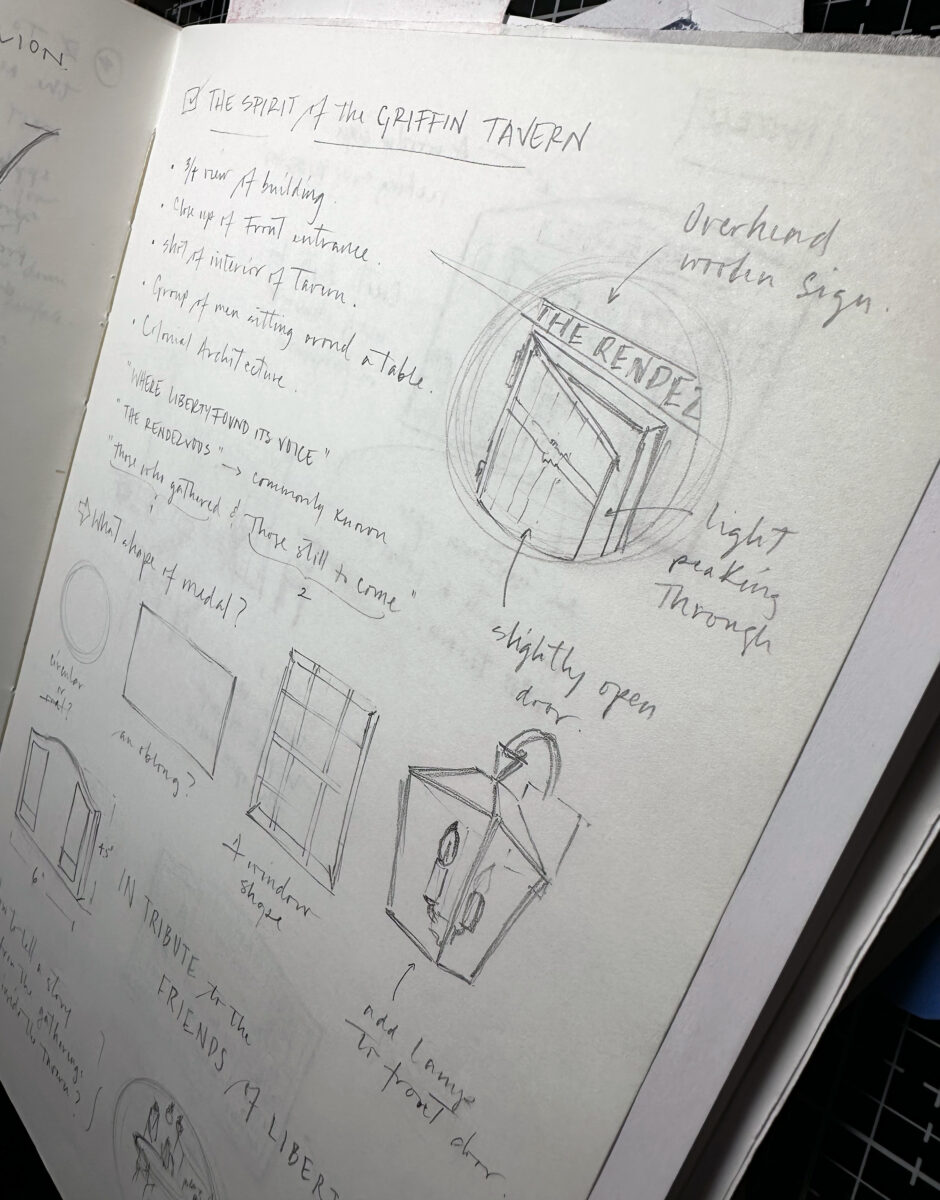 LION
THE SPIRIT of the GRIFFIN TAVERN
• 3/4 view of building.
• Close up of Front entrance.
• shot of interior of Tavern.
• Group of men sitting arond a table.
• Colonial Architecture.
"WHERE LIBERTY FOUND ITS VOICE"
"THE RENDEZVOUS" → commonly known
"those who gathered & Those still to come"
1
2
What shape of medal?
circular
or
oval?
an oblong?
A window
shape
Overhead
wooden sign.
THE RENDEZ
light
peaking
Through
slightly open
door.
add lamps
to front door.
6"
4.5"
IN TRIBUTE to the
FRIENDS of LIBERT
to tell a story
from the gatherings
inside the Tavern?